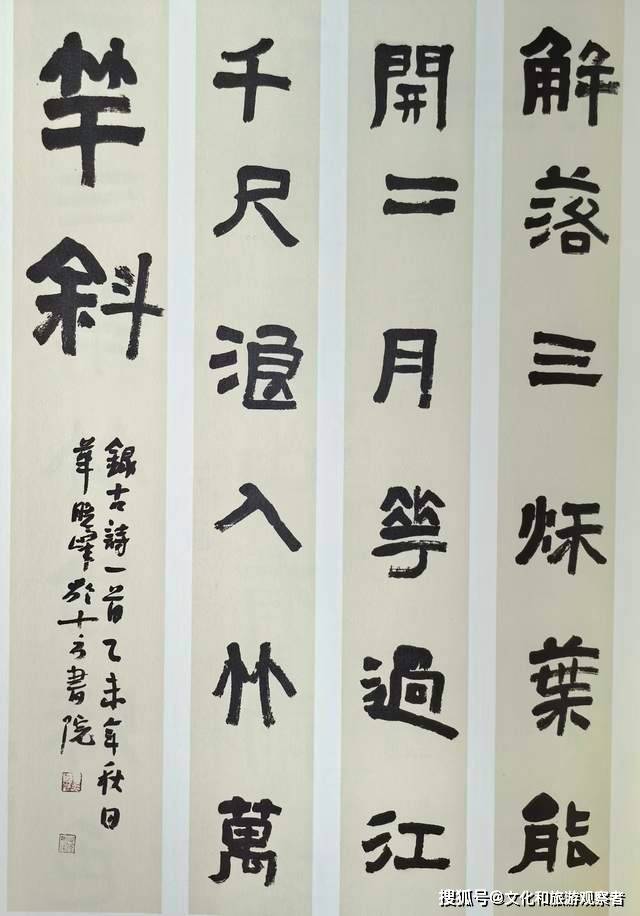 解落三秌葉能
開二月華過江
千尺浪入竹萬
竿斜
錄古詩一首乙未年秋日
華曉於十方書院
搜狐号@文化和旅游观察者